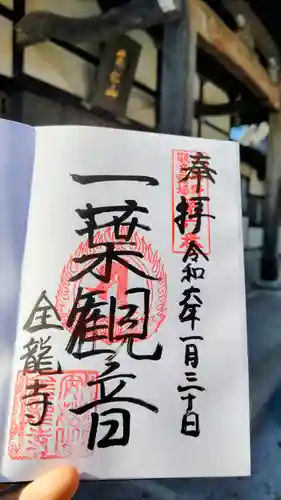 奉拝
令和六年一月三十日
一葉観音
全龍寺